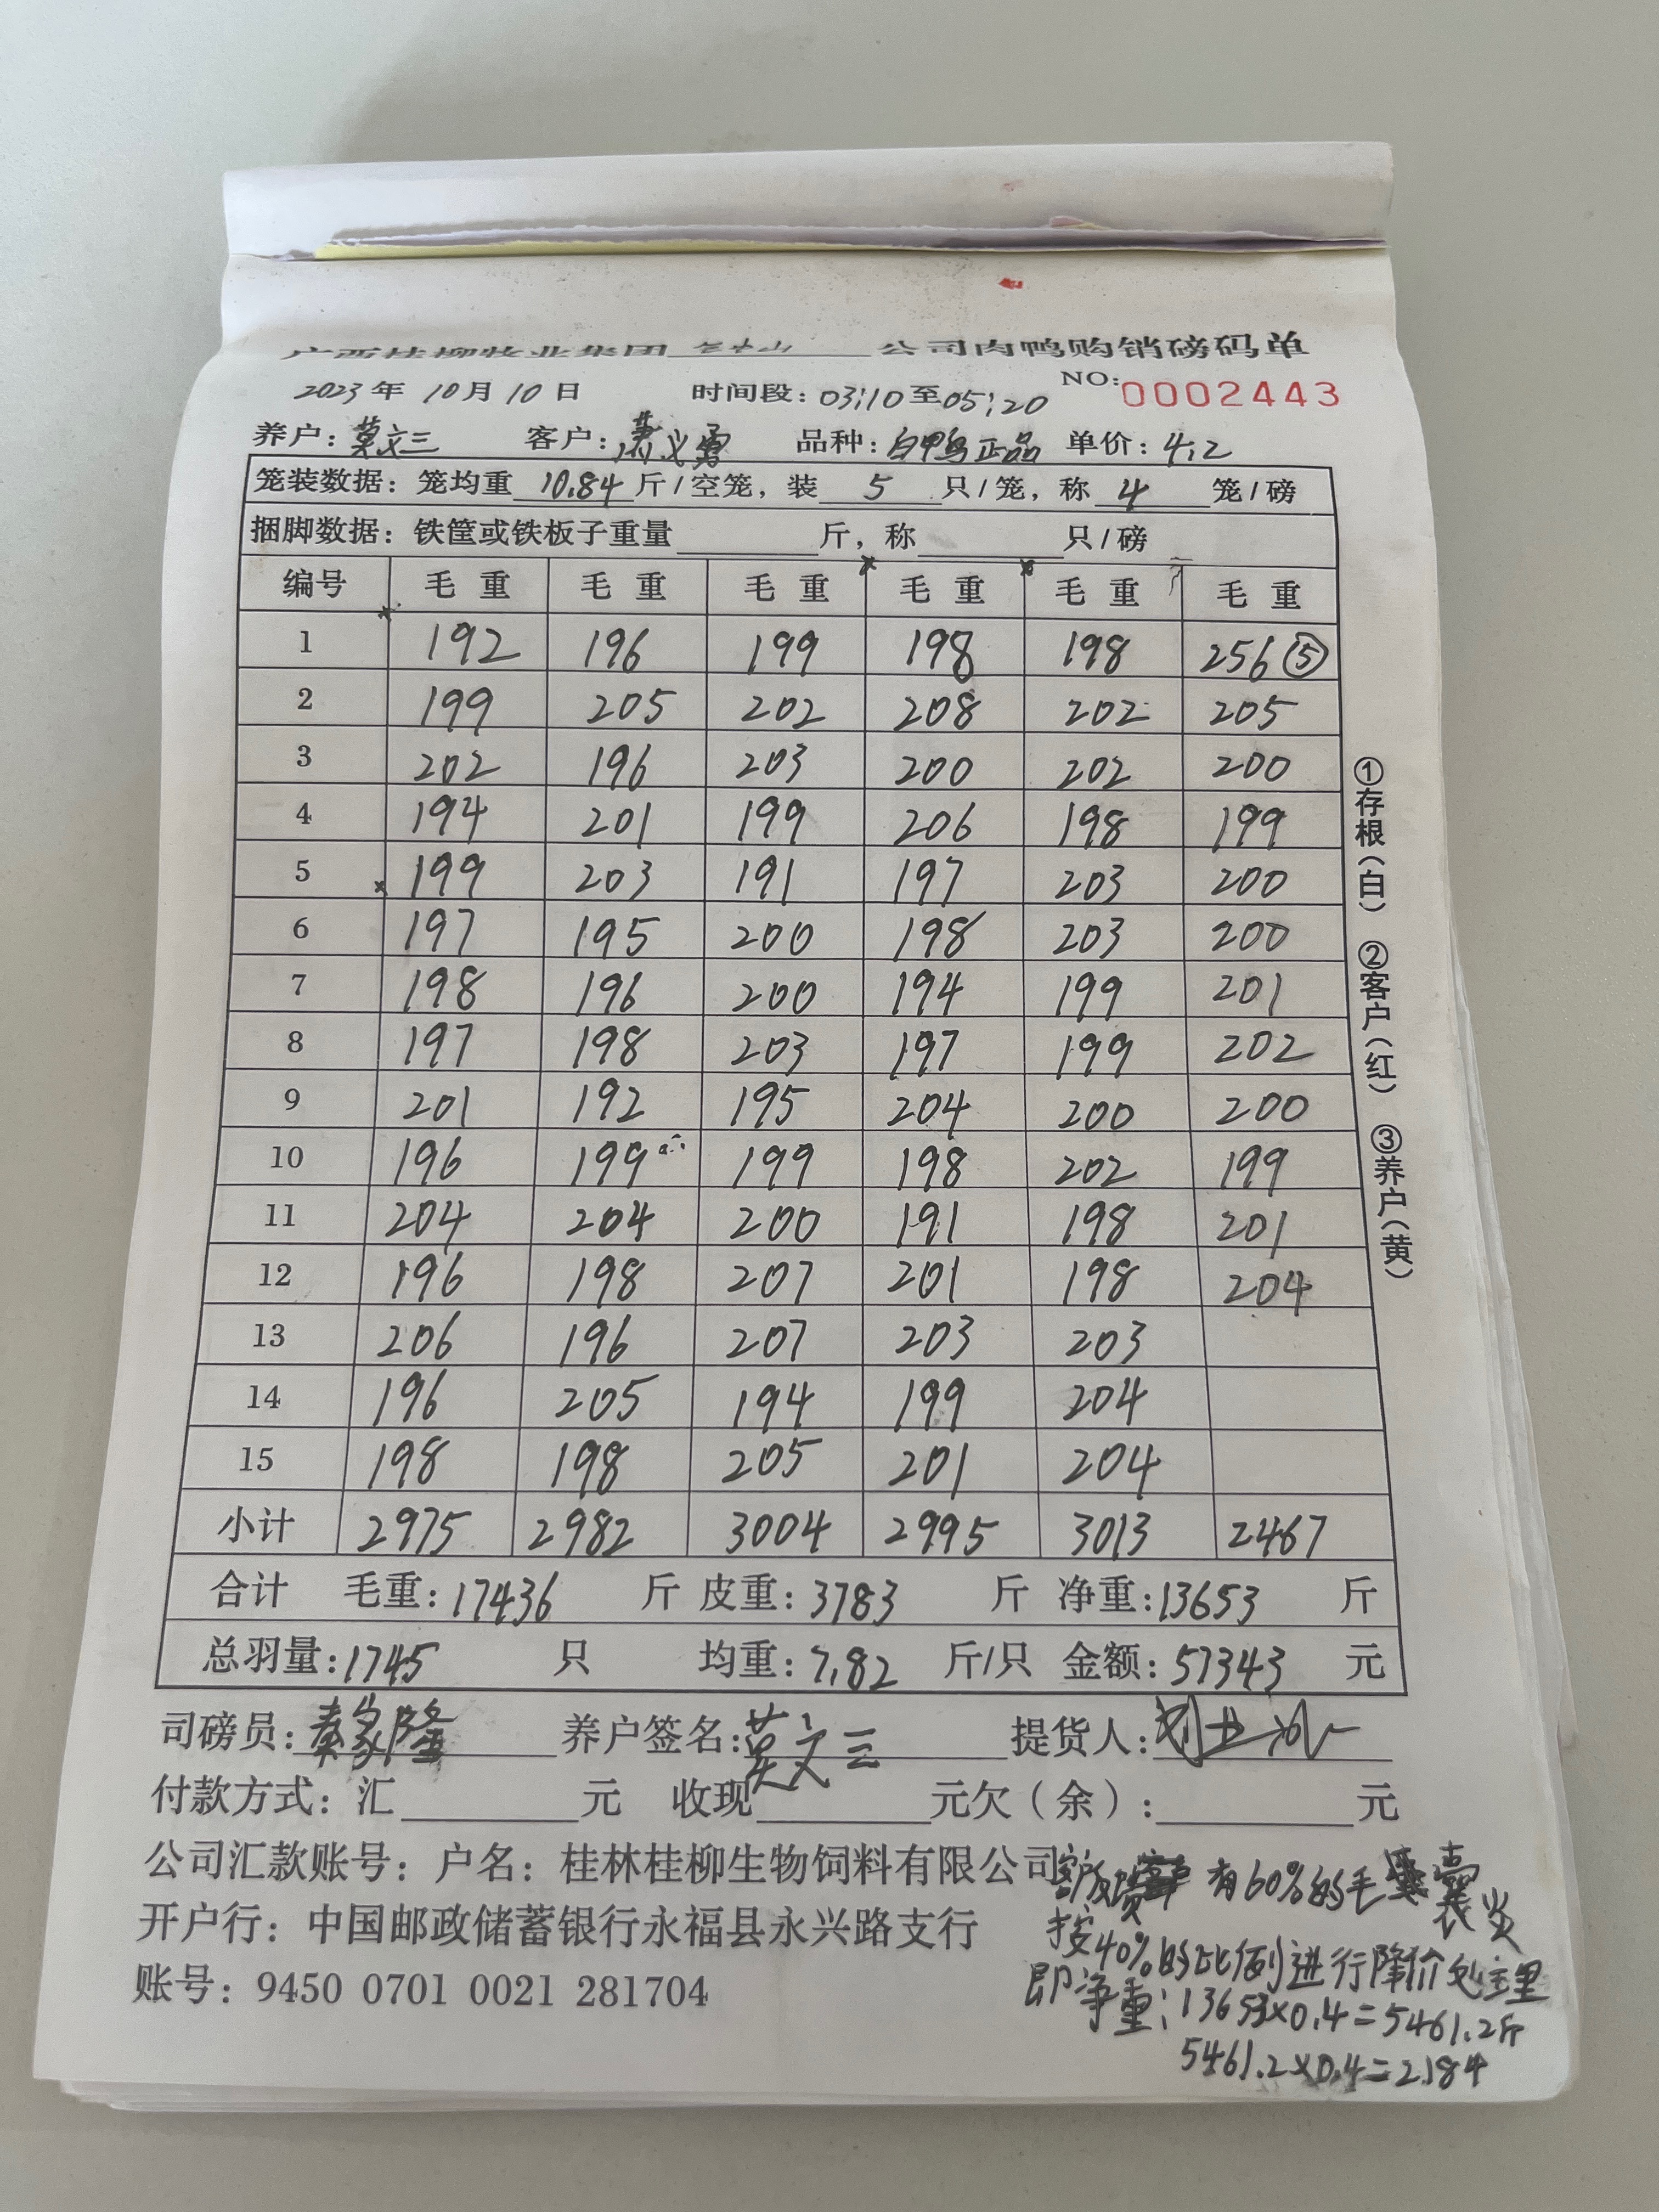 广西桂柳牧业集团 公司肉鸭购销磅码单
2023年 10月 10日 时间段：03:10至05:20 NO: 0002443
养户：莫文三 客户：萧义勇 品种：白鸭正品 单价：4.2
笼装数据：笼均重 10.84 斤/空笼，装 5 只/笼，称 4 笼/磅
捆脚数据：铁筐或铁板子重量 斤，称 只/磅
编号 毛重 毛重 毛重 毛重 毛重 毛重
1 192 196 199 198 198 256⑤
2 199 205 202 208 202 205
3 202 196 203 200 202 200
4 194 201 199 206 198 199
5 199 203 191 197 203 200
6 197 195 200 198 203 200
7 198 196 200 194 199 201
8 197 198 203 197 199 202
9 201 192 195 204 200 200
10 196 199 199 198 202 199
11 204 204 200 191 198 201
12 196 198 207 201 198 204
13 206 196 207 203 203
14 196 205 194 199 204
15 198 198 205 201 204
小计 2975 2982 3004 2995 3013 2467
合计 毛重：17436 斤 皮重：3783 斤 净重：13653 斤
总羽量：1745 只 均重：7.82 斤/只 金额：57343 元
司磅员：秦家隆 养户签名：莫文三 提货人：
付款方式：汇 元 收现 元欠（余）： 元
公司汇款账号：户名：桂林桂柳生物饲料有限公司
开户行：中国邮政储蓄银行永福县永兴路支行
账号：9450 0701 0021 281704
有60%的毛囊炎
按40%的比例进行降价处理
即净重：13653×0.4=5461.2斤
5461.2×0.4=2184
①存根（白） ②客户（红） ③养户（黄）